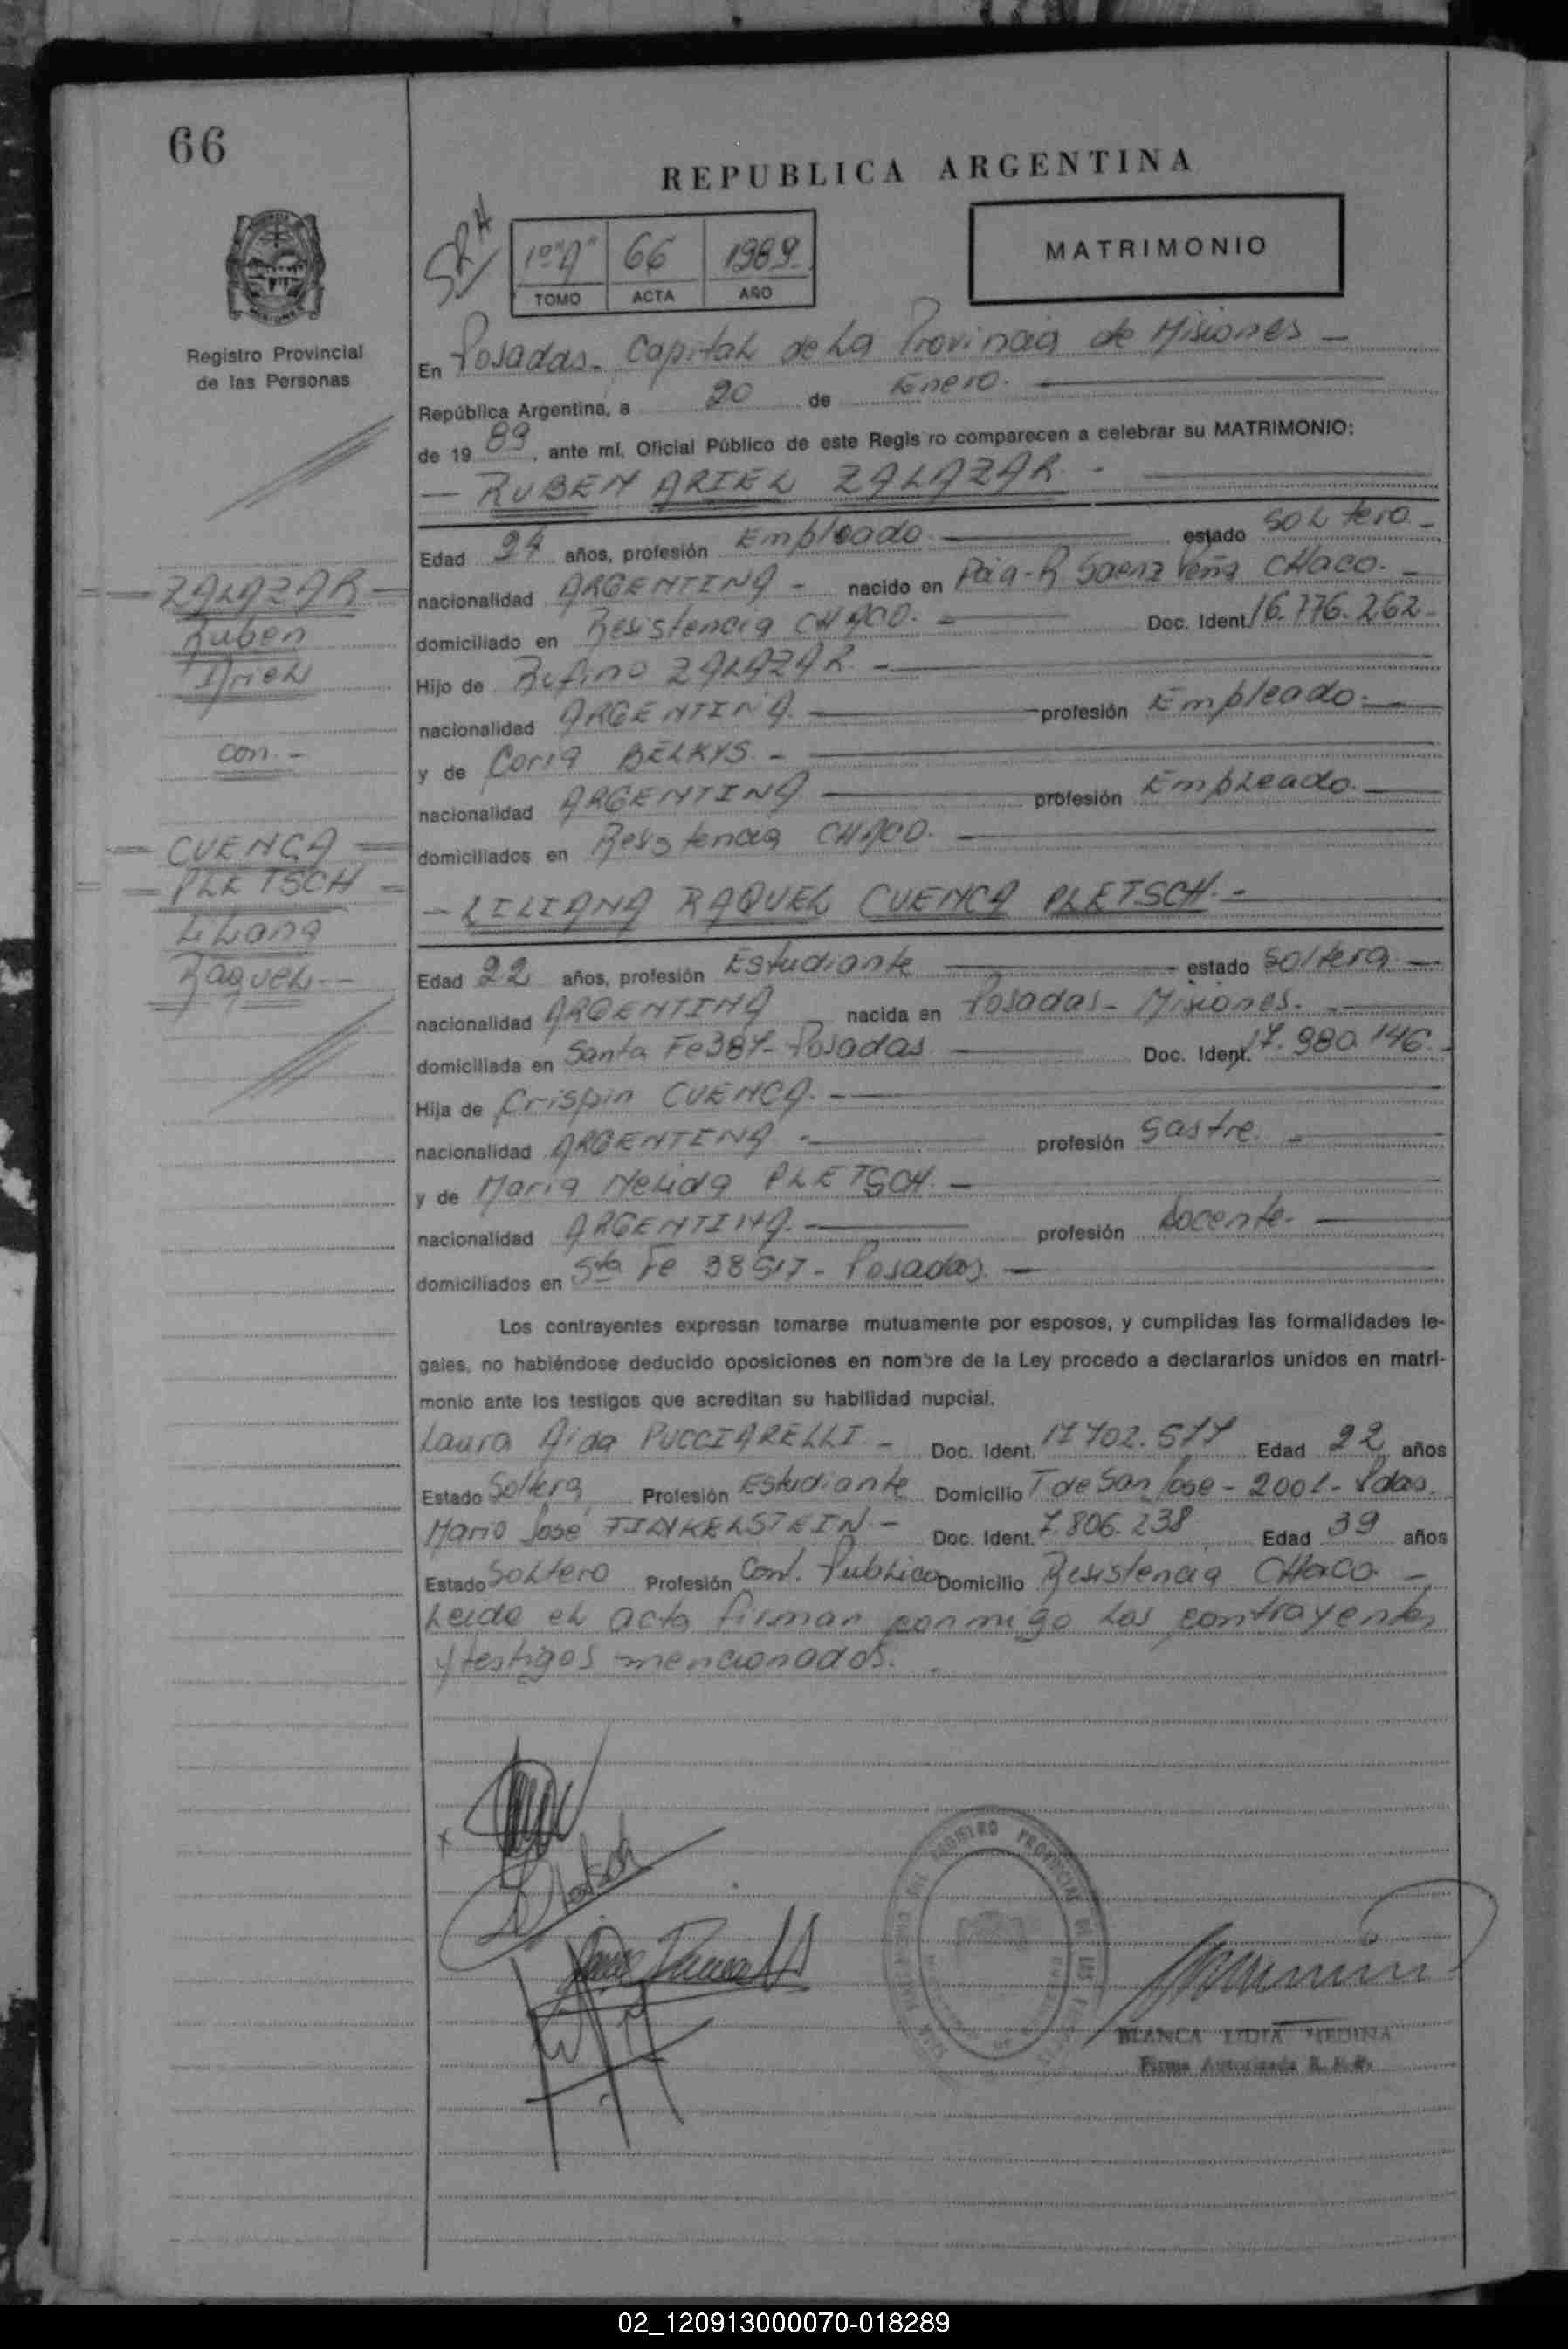 66
REPUBLICA ARGENTINA
1º "A" 66 1989
TOMO ACTA AÑO
MATRIMONIO
Registro Provincial
de las Personas
En Posadas - Capital de La Provincia de Misiones -
República Argentina, a 20 de Enero.
de 19 89, ante mí, Oficial Público de este Regis ro comparecen a celebrar su MATRIMONIO:
- RUBEN ARIEL ZALAZAR. -
Edad 24 años, profesión Empleado. estado Soltero -
nacionalidad ARGENTINA - nacido en Pcia. R Saenz Peña CHACO. -
domiciliado en Resistencia CHACO. - Doc. Ident. 16.776.262 -
Hijo de Rufino ZALAZAR. -
nacionalidad ARGENTINA. profesión Empleado.
y de Coria BELKYS. -
nacionalidad ARGENTINA profesión Empleado.
domiciliados en Resistencia CHACO.
ZALAZAR
Ruben
Ariel
con. -
CUENCA
PLETSCH
Liliana
Raquel --
- LILIANA RAQUEL CUENCA PLETSCH. -
Edad 22 años, profesión Estudiante estado Soltera -
nacionalidad ARGENTINA nacida en Posadas - Misiones.
domiciliada en Santa Fe 387 - Posadas Doc. Ident. 17.980.146.
Hija de Crispin CUENCA. -
nacionalidad ARGENTINA - profesión Sastre. -
y de Maria Nelida PLETSCH. -
nacionalidad ARGENTINA. profesión docente.
domiciliados en Sta Fe - Posadas. -
Los contrayentes expresan tomarse mutuamente por esposos, y cumplidas las formalidades le-
gales, no habiéndose deducido oposiciones en nombre de la Ley procedo a declararlos unidos en matri-
monio ante los testigos que acreditan su habilidad nupcial.
Laura Aida PUCCIARELLI - Doc. Ident. 17702.577 Edad 22 años
Estado Soltera Profesión Estudiante Domicilio T de San Jose - 2001 - Pdas.
Mario José FINKELSTEIN - Doc. Ident. 7.806.238 Edad 39 años
Estado Soltero Profesión Cont. Publico Domicilio Resistencia CHACO. -
Leida el acta firman conmigo los contrayentes
y testigos mencionados. -
BLANCA LIDIA MEDINA
Firma Autorizada R. P. P.
02_120913000070-018289